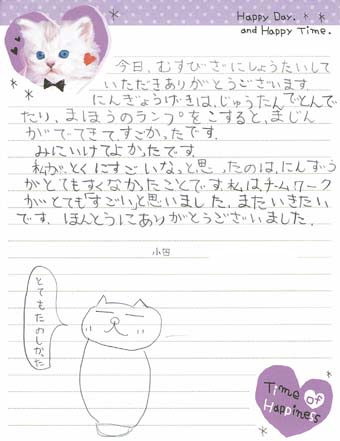 Happy Day.
and Happy Time.
今日、むすびざにしょうたいして
いただきありがとうございます。
にんぎょうげきは、じゅうたんでとんで
たり、まほうのランプをこすると、まじん
がでてきて、すごかったです。
みにいけてよかったです。
私が、とくにすごいなっと思ったのは、にんずう
がとてもすくなかったことです。私は、チームワーク
がとても「すごい」と思いました。またいきたい
です。ほんとうにありがとうございました。
小四
とてもたのしかった
Time of
Happiness